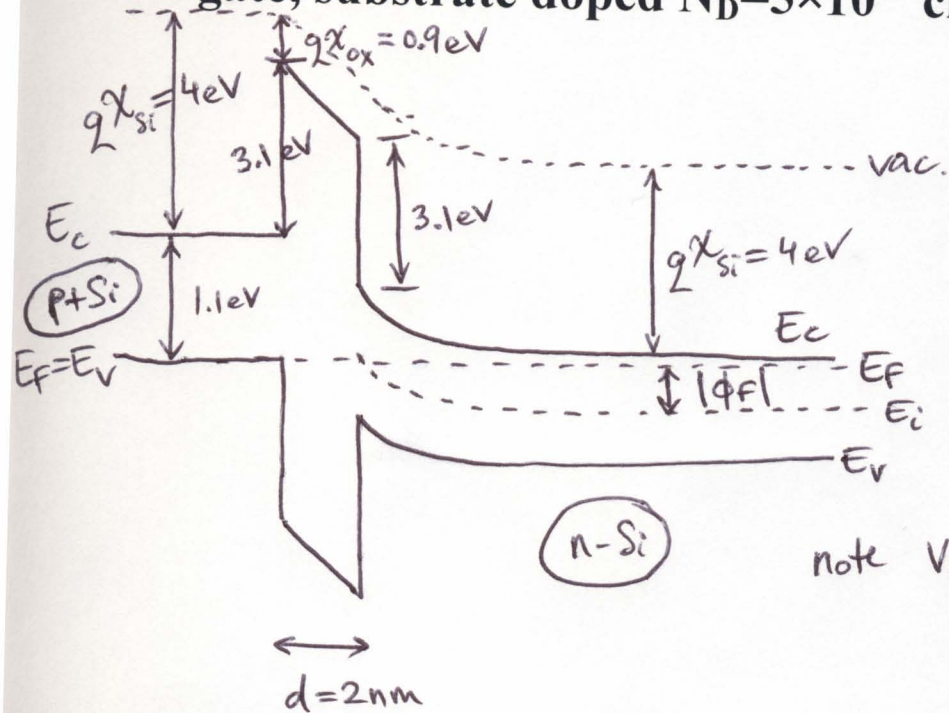 gate, substrate doped N_D=5×10 c
qχ_ox = 0.9eV
qχ_Si = 4eV
3.1eV
vac.
3.1eV
E_c
qχ_Si = 4eV
p+Si
1.1eV
E_c
E_F=E_V
E_F
|ϕ_F|
E_i
E_V
n-Si
note V
d=2nm